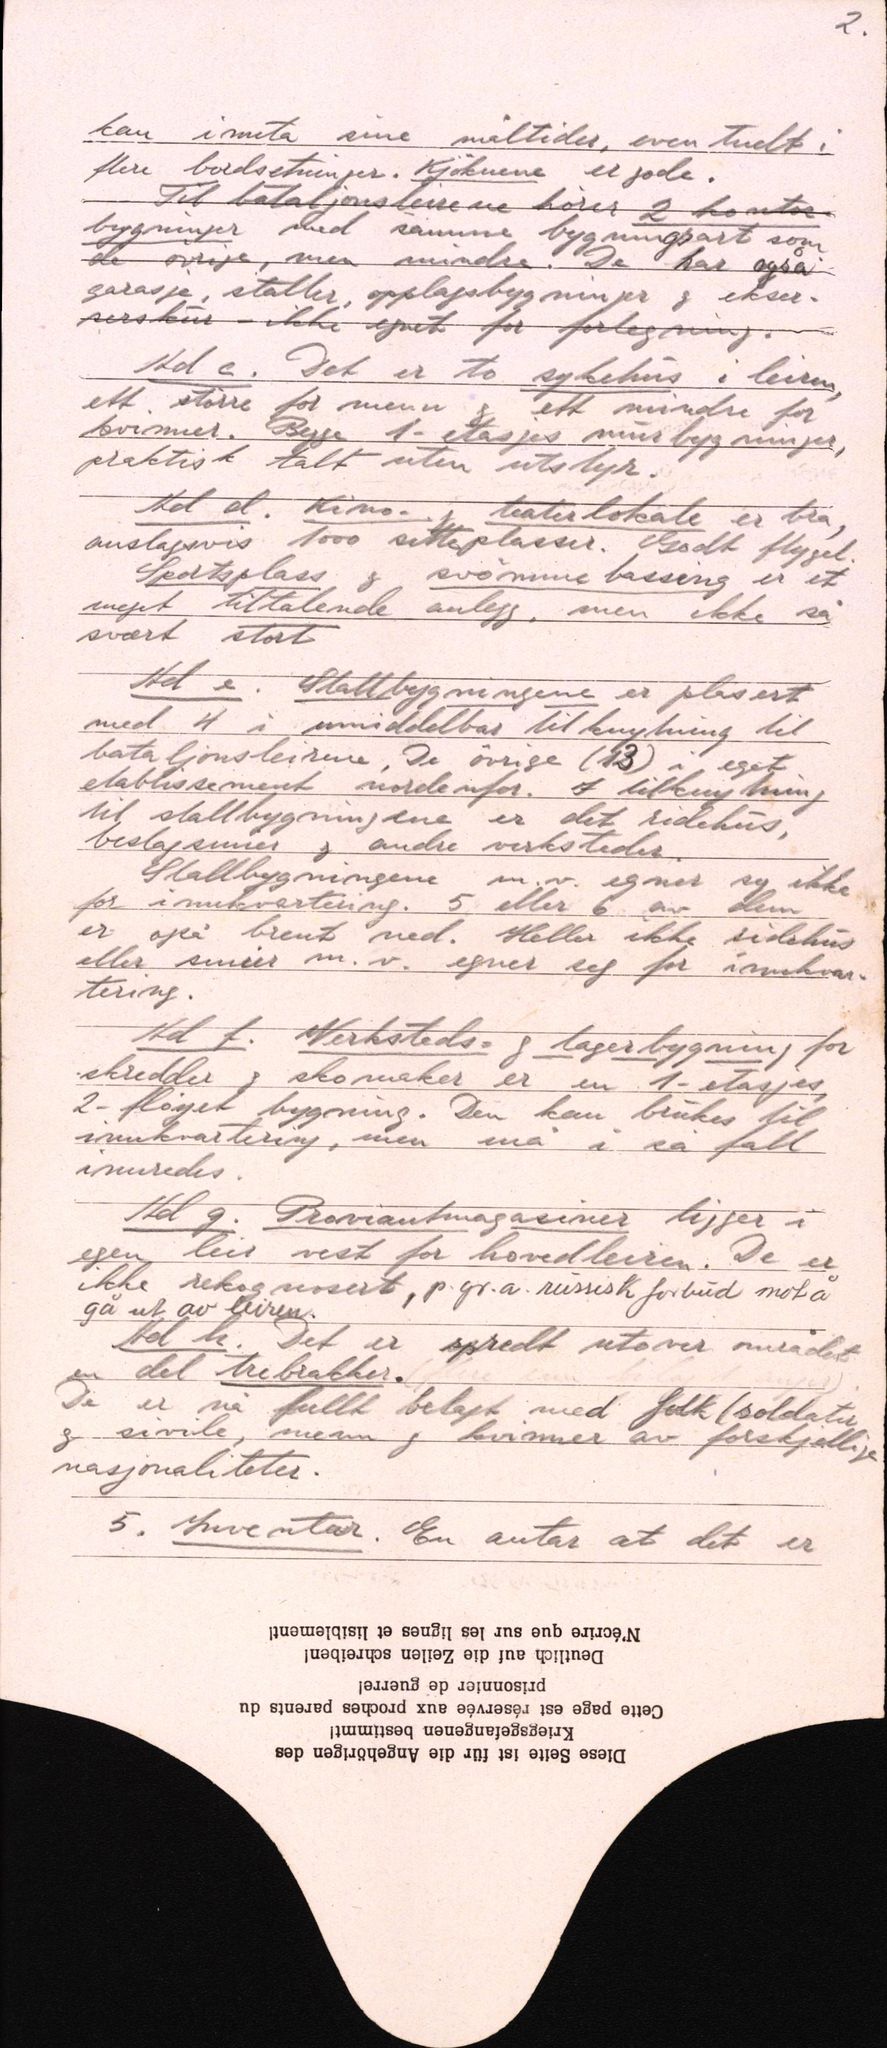 2.
kan innta sine måltider, eventuelt i
flere bordsetninger. Kjöknene er gode.
Til bataljonsleirene hörer 2 kontor-
bygninger med samme bygningsart som
de övrige, men mindre. De har også
garasje, staller, opplagsbygninger & ekser-
serskur - ikke egnet for forlegning.
Ad c. Det er to sykehus i leiren,
ett större for menn & ett mindre for
kvinner. Begge 1-etasjes murbygninger,
praktisk talt uten utstyr.
Ad d. Kino- & teaterlokale er bra,
anslagsvis 1000 sitteplasser. Godt flygel.
Sportsplass & svömmebasseng er et
meget tiltalende anlegg, men ikke så
svært stort
Ad e. Stallbygningene er plasert
med 4 i umiddelbar tilknytning til
bataljonsleirene, De övrige (13) i eget
etablissement nordenfor. I tilknytning
til stallbygningene er det ridehus,
beslagsmier & andre verksteder.
Stallbygningene m.v. egner seg ikke
for innkvartering. 5 eller 6 av dem
er også brent ned. Heller ikke ridehus
eller smier m.v. egner seg for innkvar-
tering.
Ad f. Verksteds- & lagerbygning for
skredder & skomaker er en 1-etasjes,
2-flöyet bygning. Den kan brukes til
innkvartering, men må i så fall
innredes.
Ad g. Proviantmagasiner ligger i
egen leir vest for hovedleiren. De er
ikke rekognosert, p.gr.a. russisk forbud mot å
gå ut av leiren.
Ad h. Det er spredt utover området
en del trebrakker.
De er nå fullt belagt med folk (soldater
& sivile, menn & kvinner av forskjellige
nasjonaliteter.
5. Inventar. En antar at det er
N'écrire que sur les lignes et lisiblement!
Deutlich auf die Zeilen schreiben!
prisonnier de guerre!
Cette page est réservée aux proches parents du
Kriegsgefangenen bestimmt!
Diese Seite ist für die Angehörigen des